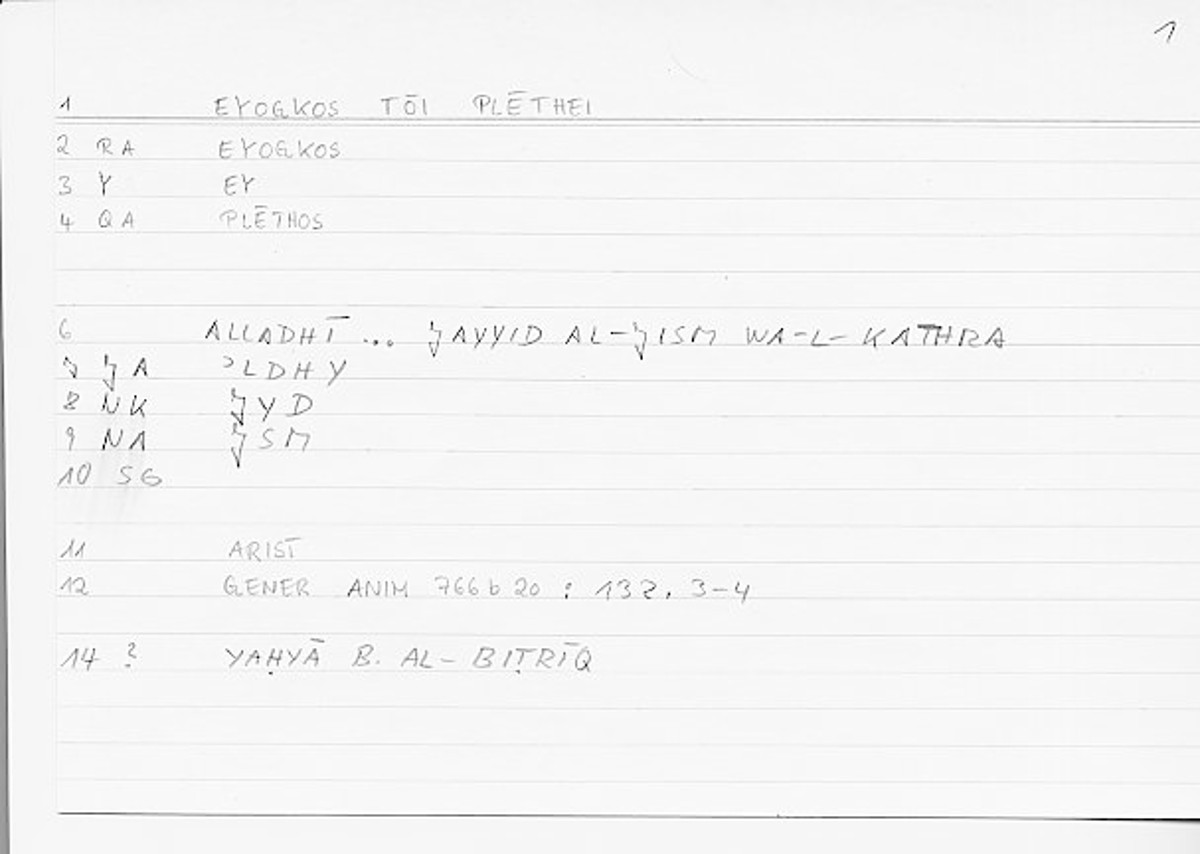 1
1 EYOGKOS TŌI PLĒTHEI
2 RA EYOGKOS
3 Y EY
4 QA PLĒTHOS
6 ALLADHĪ ... ǦAYYID AL-ǦISM WA-L-KATHRA
7 ǦA ʾLDHY
8 NK ǦYD
9 NA ǦSM
10 SG
11 ARIST
12 GENER ANIM 766 b 20 : 132, 3-4
14 ? YAḤYĀ B. AL-BIṬRĪQ